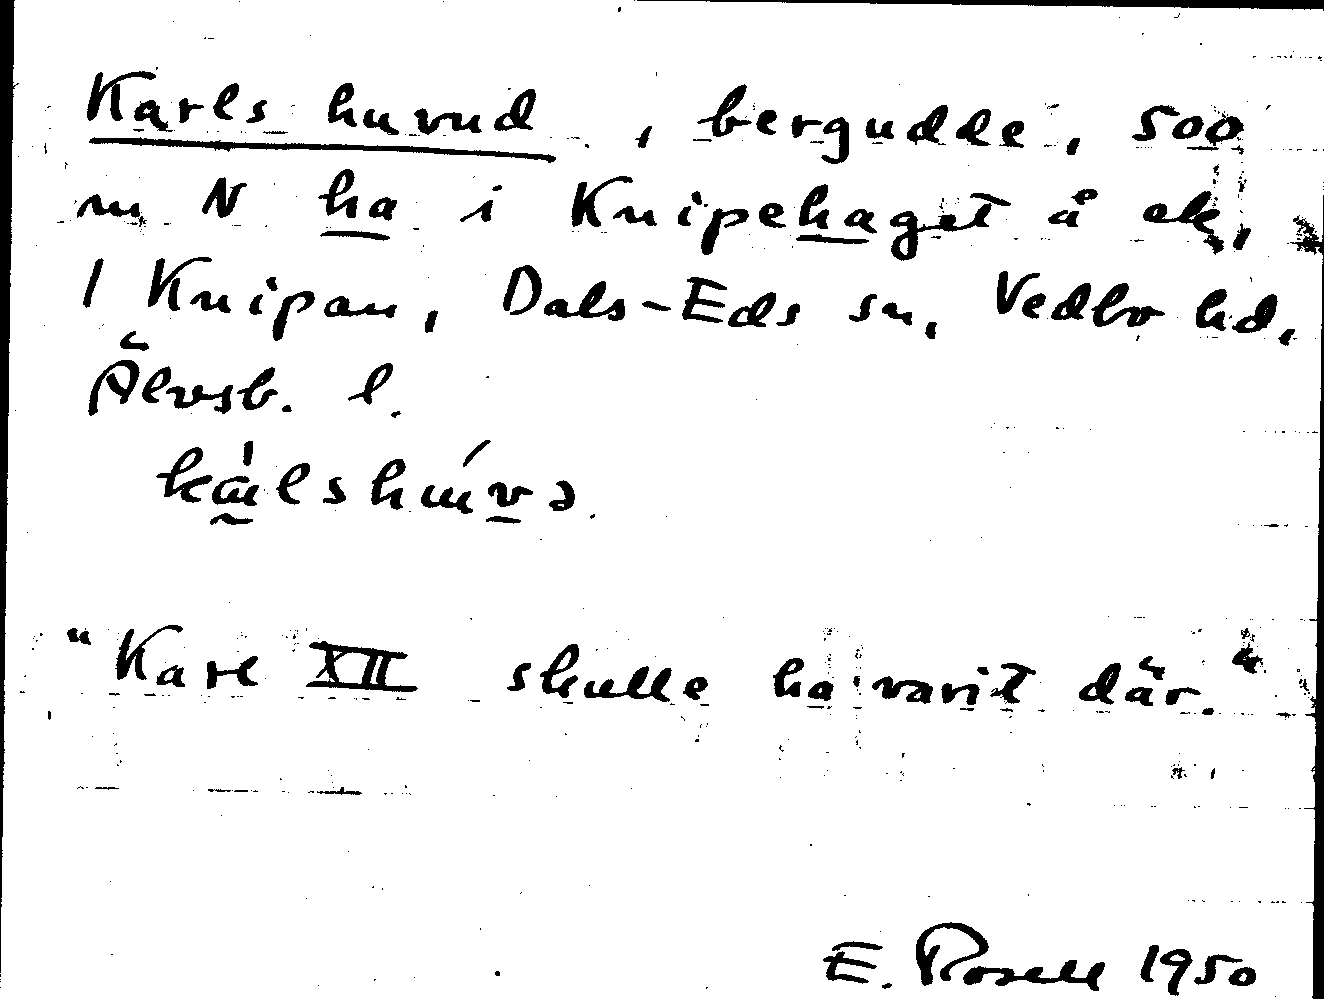 Karls huvud, bergudde, 500
m N ha i Knipehaget å ek,
1 Knipan, Dals-Eds sn, Vedbo hd,
Älvsb. l.
"Karl XII skulle ha varit där."
E. Rosell 1950